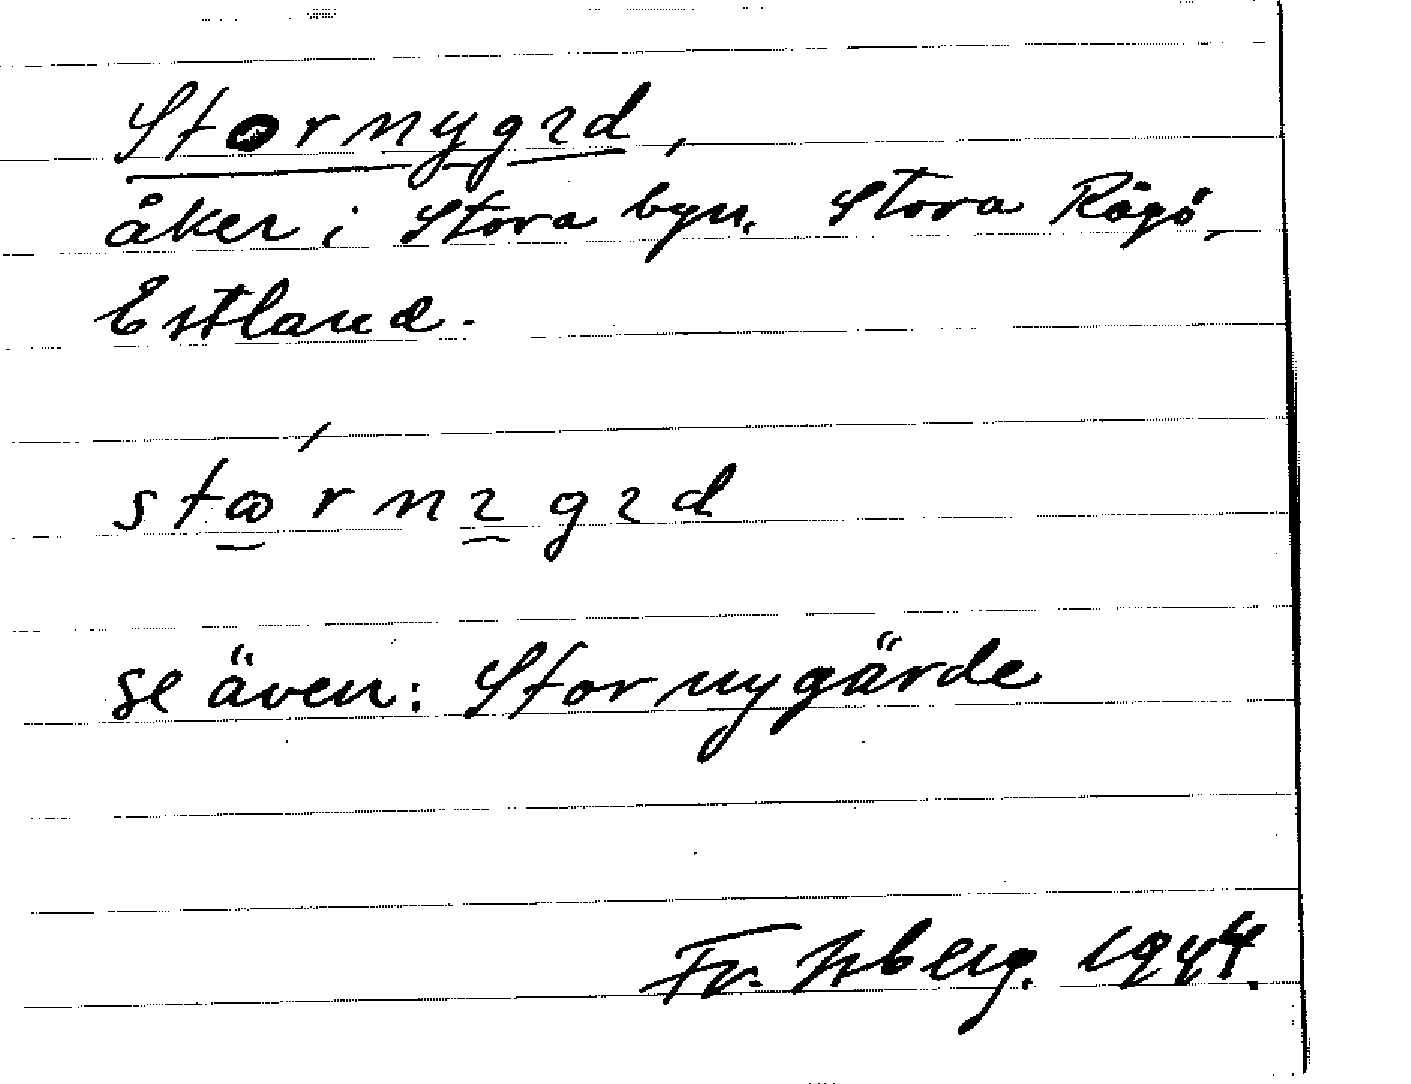 Stornygɿd,
åker i Stora byn, Stora Rågö,
Estland.
stꝏrnɿgɿd
se även: Stornygärde
Fr. Isberg. 1944.